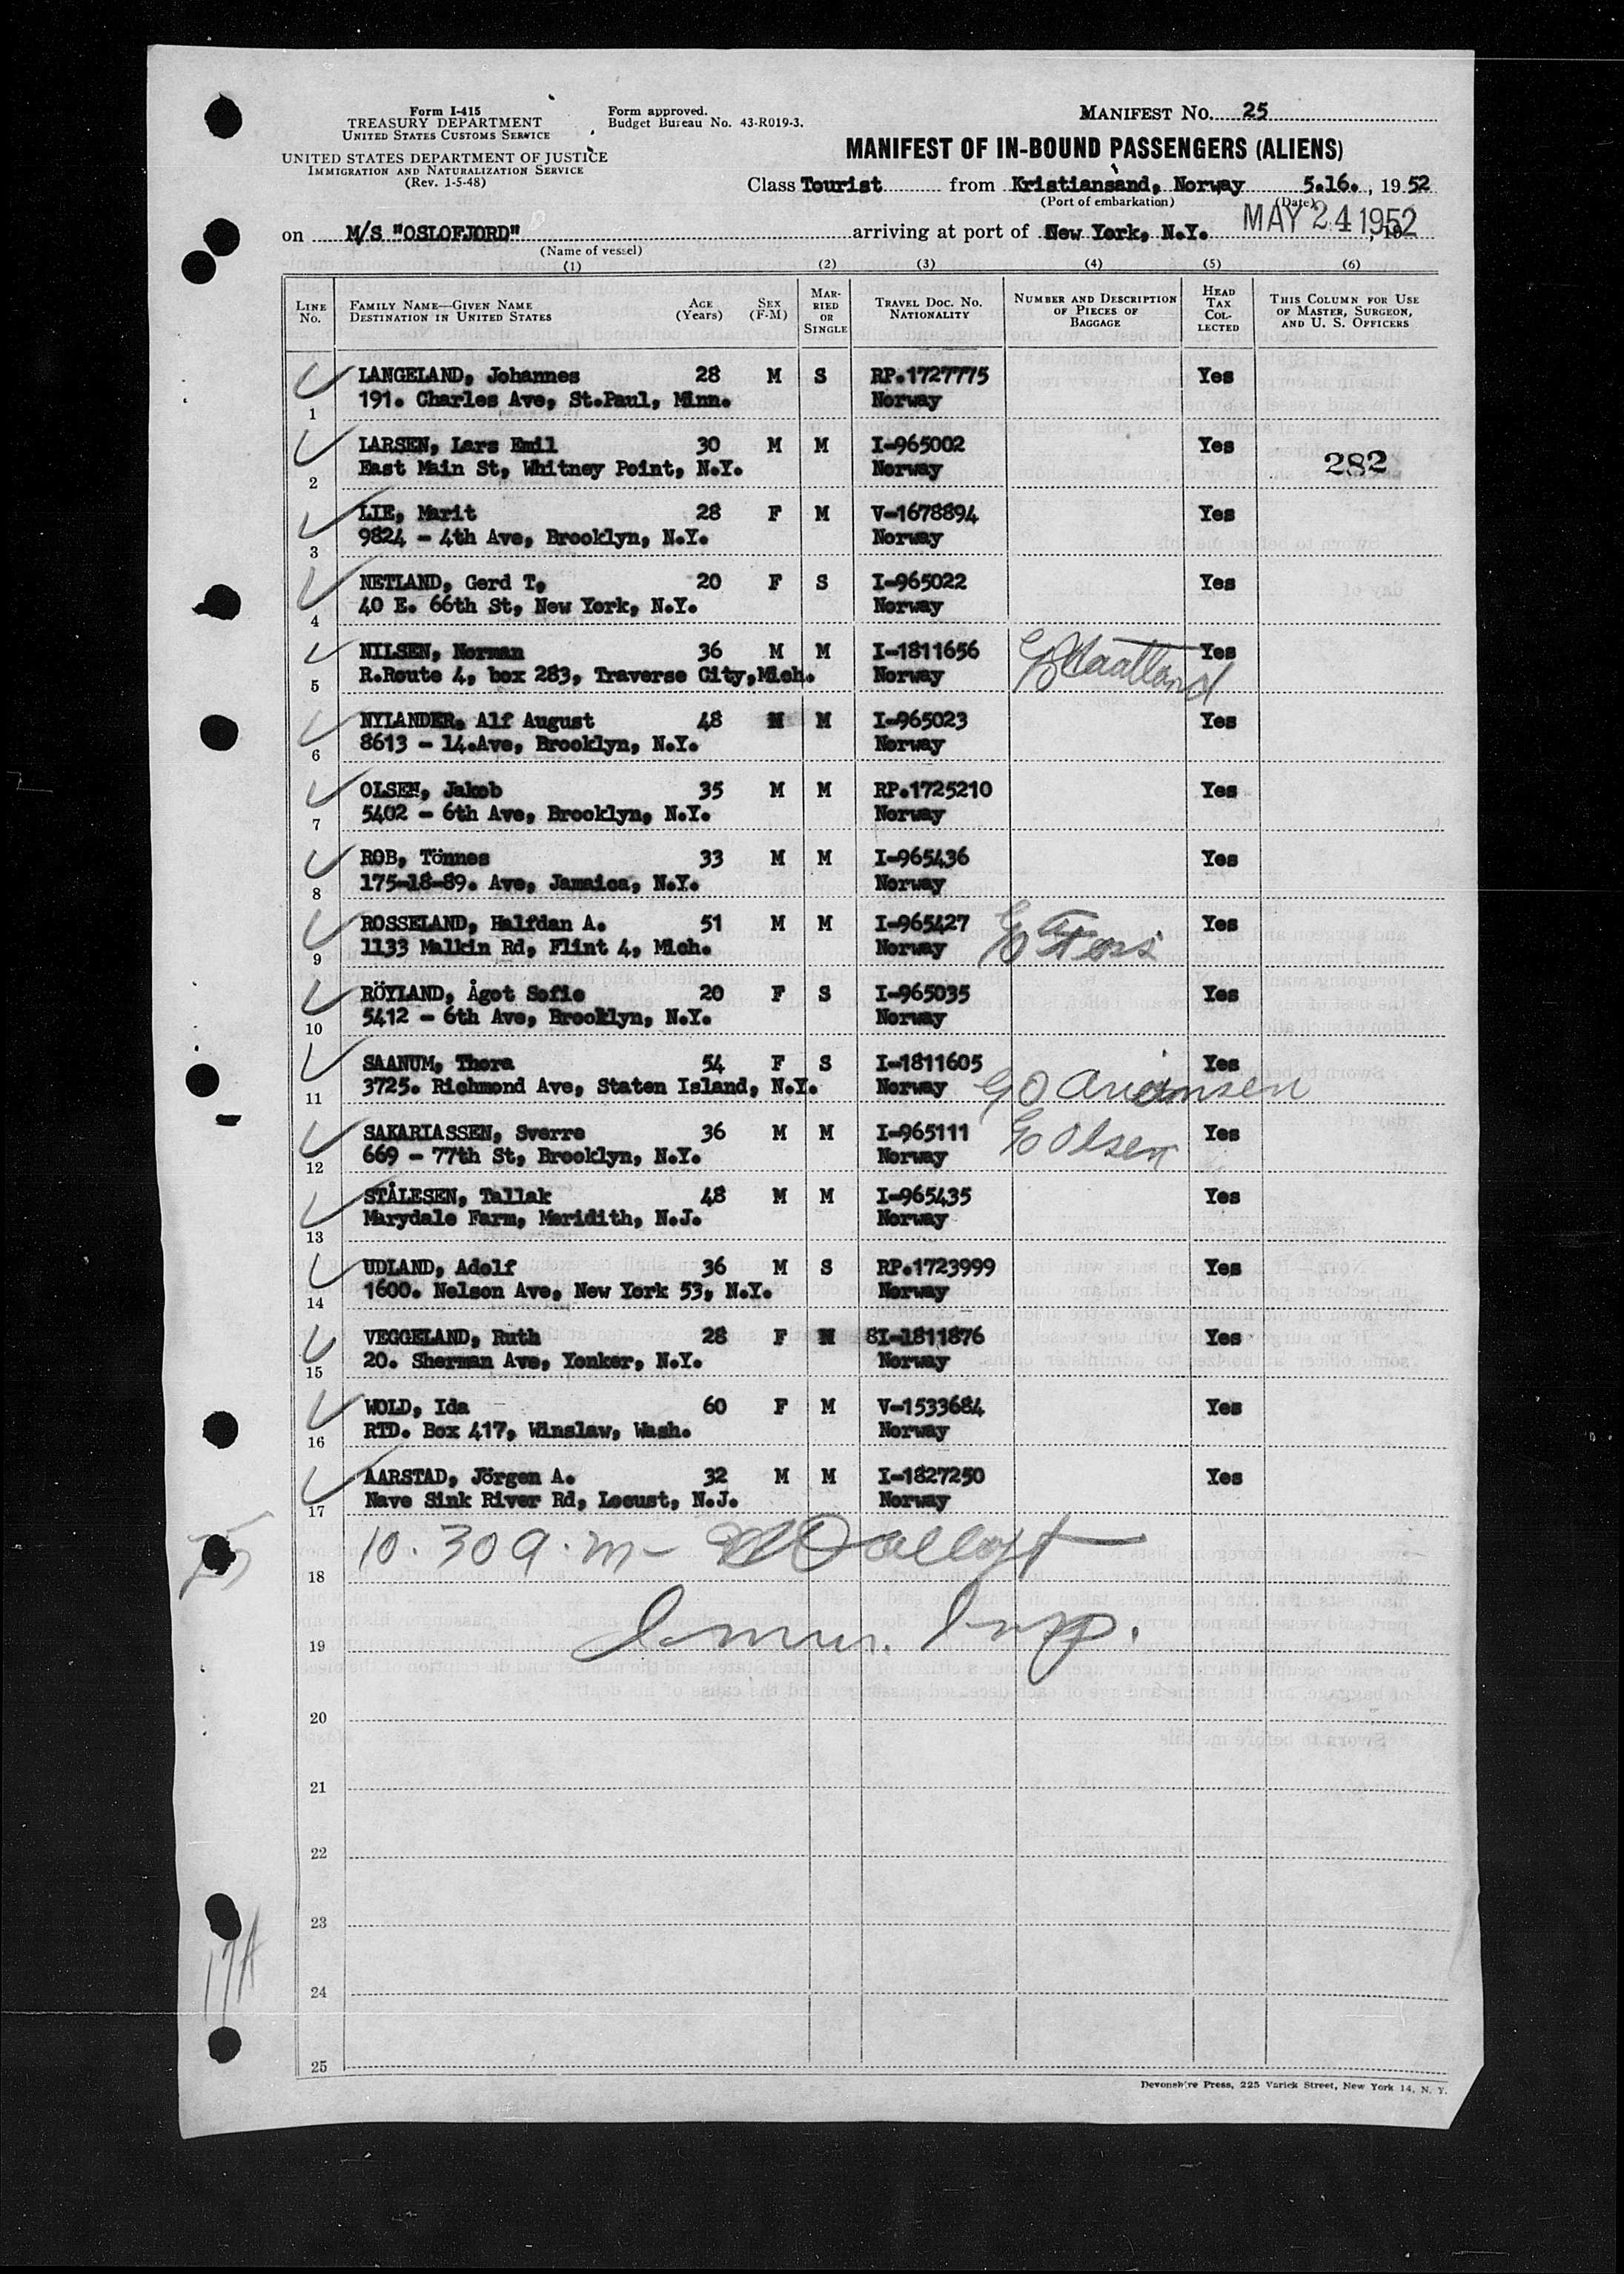 Form I-415
TREASURY DEPARTMENT
UNITED STATES CUSTOMS SERVICE
UNITED STATES DEPARTMENT OF JUSTICE
IMMIGRATION AND NATURALIZATION SERVICE
(Rev. 1-5-48)
Form approved.
Budget Bureau No. 43-R019-3.
MANIFEST NO. 25
MANIFEST OF IN-BOUND PASSENGERS (ALIENS)
Class Tourist from Kristiansand, Norway 5.16., 1952
(Port of embarkation) (Date)
on M/S "OSLOFJORD" arriving at port of New York, N.Y. MAY 24 1952, 19
(Name of vessel)
(1) (2) (3) (4) (5) (6)
LINE NO. FAMILY NAME—GIVEN NAME DESTINATION IN UNITED STATES AGE (Years) SEX (F-M) MARRIED OR SINGLE TRAVEL DOC. NO. NATIONALITY NUMBER AND DESCRIPTION OF PIECES OF BAGGAGE HEAD TAX COLLECTED THIS COLUMN FOR USE OF MASTER, SURGEON, AND U. S. OFFICERS
LANGELAND, Johannes 28 M S RP.1727775 Yes
1 191. Charles Ave, St.Paul, Minn. Norway
LARSEN, Lars Emil 30 M M I-965002 Yes
2 East Main St, Whitney Point, N.Y. Norway 282
LIE, Marit 28 F M V-1678894 Yes
3 9824 - 4th Ave, Brooklyn, N.Y. Norway
NETLAND, Gerd T, 20 F S I-965022 Yes
4 40 E. 66th St, New York, N.Y. Norway
NILSEN, Norman 36 M M I-1811656 Yes
5 R.Route 4, box 283, Traverse City,Mich. Norway
NYLANDER, Alf August 48 M M I-965023 Yes
6 8613 - 14.Ave, Brooklyn, N.Y. Norway
OLSEN, Jakob 35 M M RP.1725210 Yes
7 5402 - 6th Ave, Brooklyn, N.Y. Norway
ROB, Tönnes 33 M M I-965436 Yes
8 175-18-89. Ave, Jamaica, N.Y. Norway
ROSSELAND, Halfdan A. 51 M M I-965427 Yes
9 1133 Malkin Rd, Flint 4, Mich. Norway
RÖYLAND, Ågot Sofie 20 F S I-965035 Yes
10 5412 - 6th Ave, Brooklyn, N.Y. Norway
SAANUM, Thora 54 F S I-1811605 Yes
11 3725. Richmond Ave, Staten Island, N.Y. Norway
SAKARIASSEN, Sverre 36 M M I-965111 Olsen Yes
12 669 - 77th St, Brooklyn, N.Y. Norway
STÅLESEN, Tallak 48 M M I-965435 Yes
13 Marydale Farm, Meridith, N.J. Norway
UDLAND, Adolf 36 M S RP.1723999 Yes
14 1600. Nelson Ave, New York 53, N.Y. Norway
VEGGELAND, Ruth 28 F M 8I-1811876 Yes
15 20. Sherman Ave, Yonker, N.Y. Norway
WOLD, Ida 60 F M V-1533684 Yes
16 RTD. Box 417, Winslaw, Wash. Norway
AARSTAD, Jörgen A. 32 M M I-1827250 Yes
17 Nave Sink River Rd, Locust, N.J. Norway
18 10.30 a.m-
19 Immn. Insp.
20
21
22
23
24
25
17A
Devonshire Press, 225 Varick Street, New York 14, N. Y.